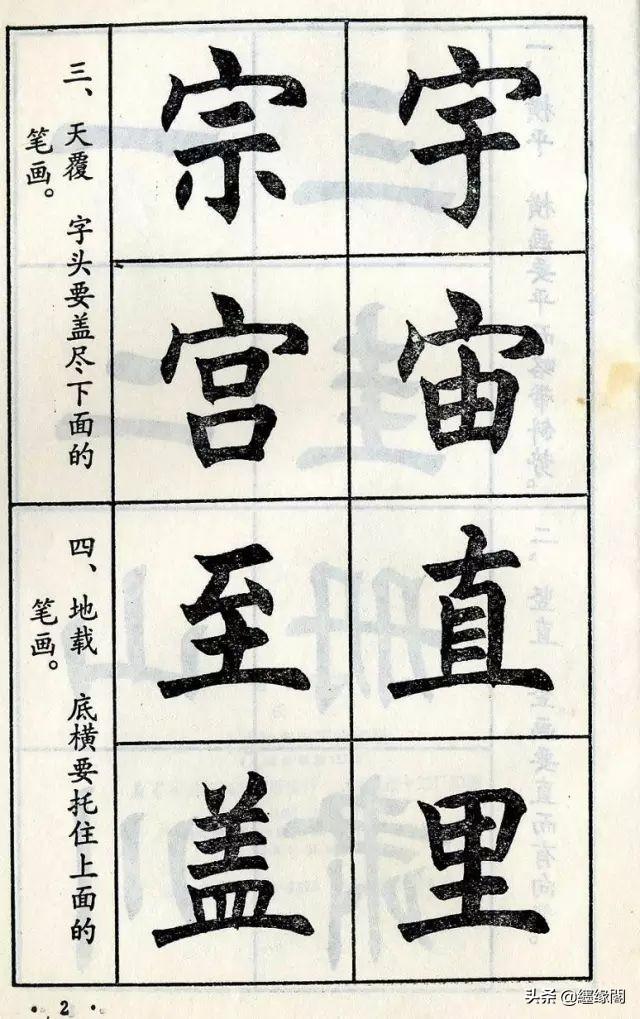 宇
宙
宗
宫
三、天覆 字头要盖尽下面的
笔画。
直
里
至
盖
四、地载 底横要托住上面的
笔画。
· 2 ·
头条 @缠缘阁